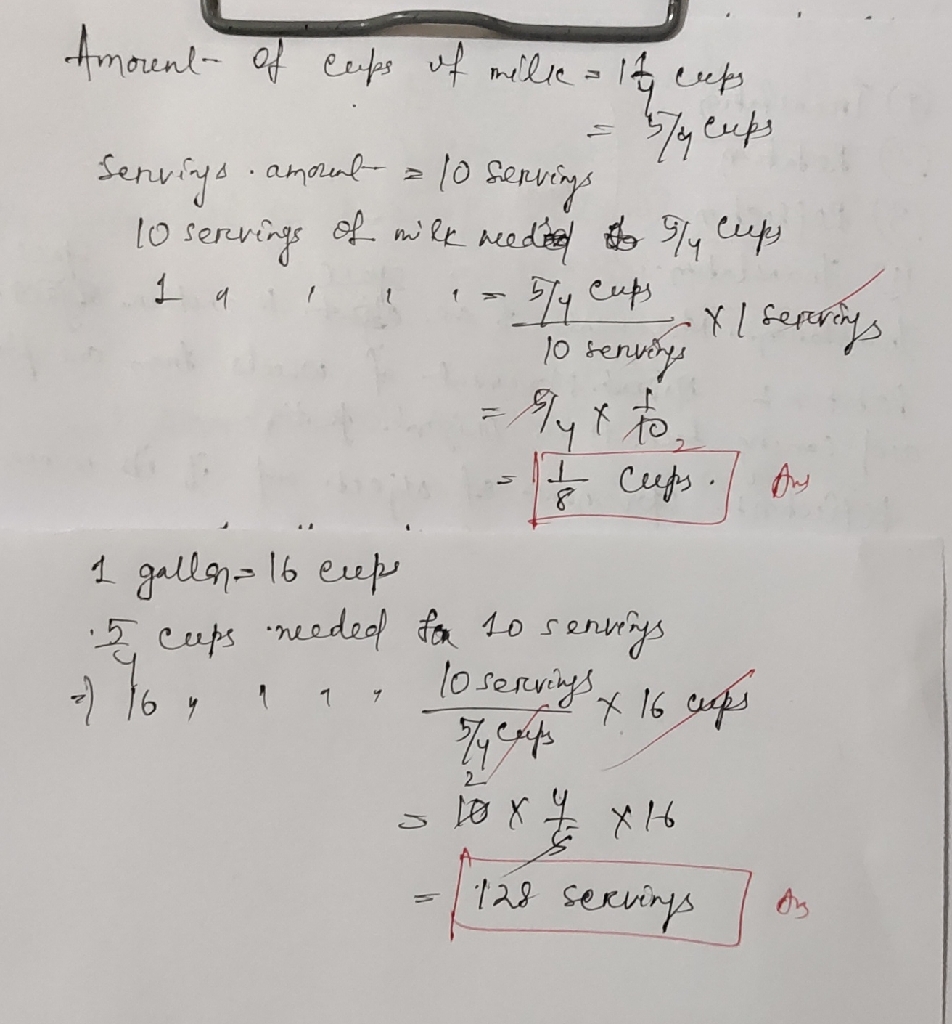 Amount of cups of milk = 1 1/4 cups
= 5/4 cups
Servings . amount = 10 Servings
10 servings of milk need 5/4 cups
1 " " " " = 5/4 cups / 10 servings × 1 Servings
= 5/4 × 1/10 2
= 1/8 cups . Ans
1 gallon = 16 cups
. 5/4 cups needed for 10 servings
=) 16 " " " " 10 servings / 5/4 cups × 16 cups
2
= 10 × 4/5 × 16
= 128 servings Ans